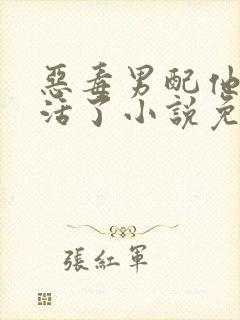 惡毒男配他
活了小說免
張紅軍